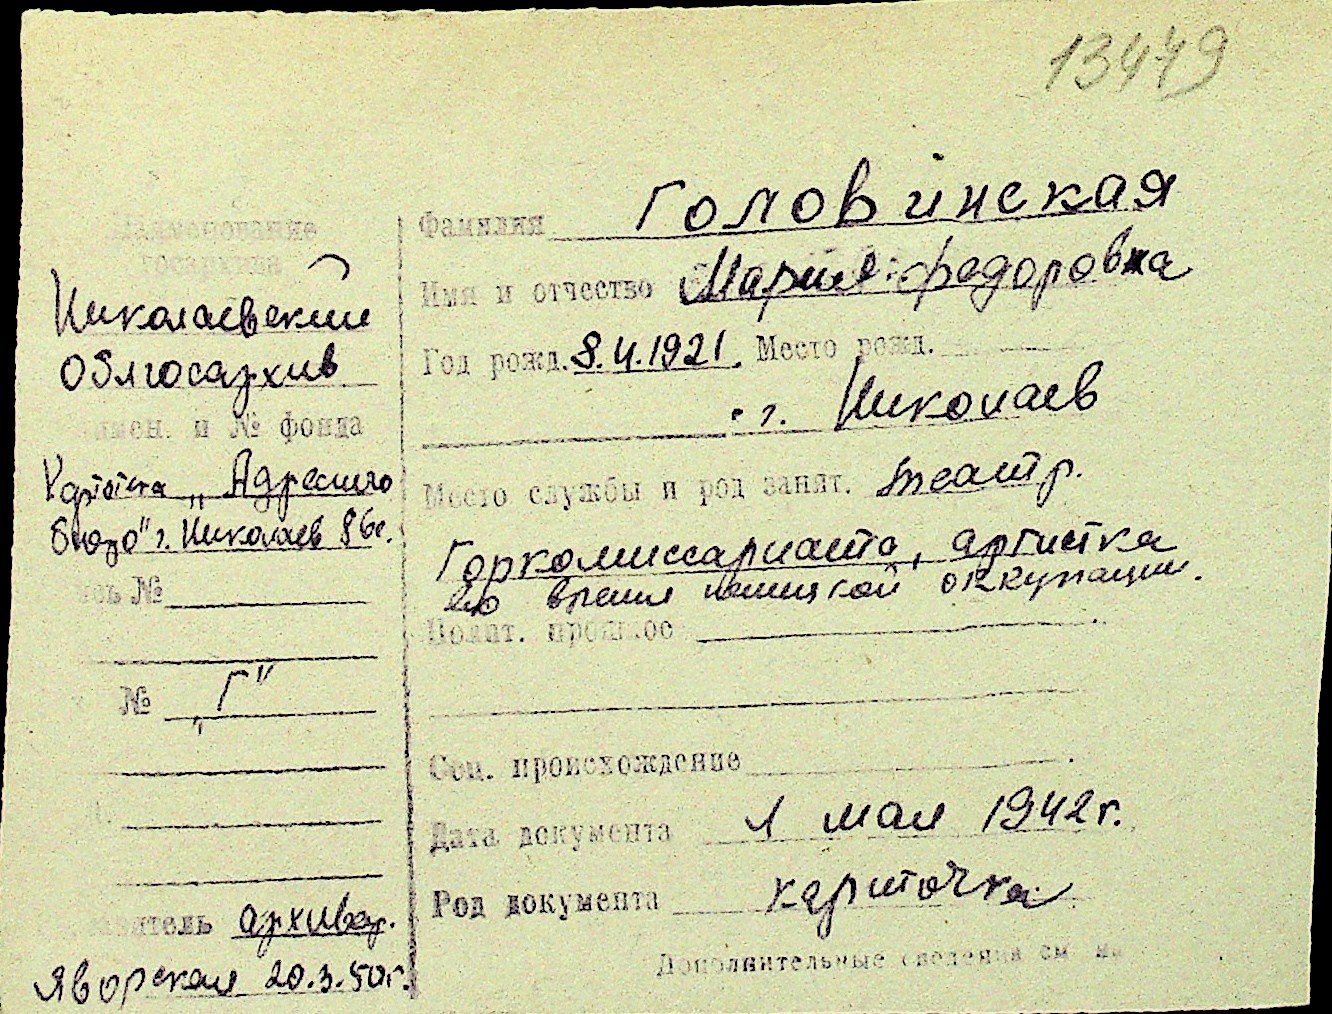 13479
Наименование
госархива
Николаевский
облгосархив
имен. и № фонда
Картотека „Адресного
бюро" г. Николаев
№
№ „Г"
архивар.
Яворская 20.3.50г.
Фамилия Головинская
Имя и отчество Мария Федоровна
Год рожд. 8.4.1921. Место рожд.
г. Николаев
Место службы и род занят. театр.
Горкомиссариата, артистка
во время немецкой оккупации.
Полит. прошлое
Соц. происхождение
Дата документа 1 мая 1942г.
Род документа карточка
Дополнительные сведения см на